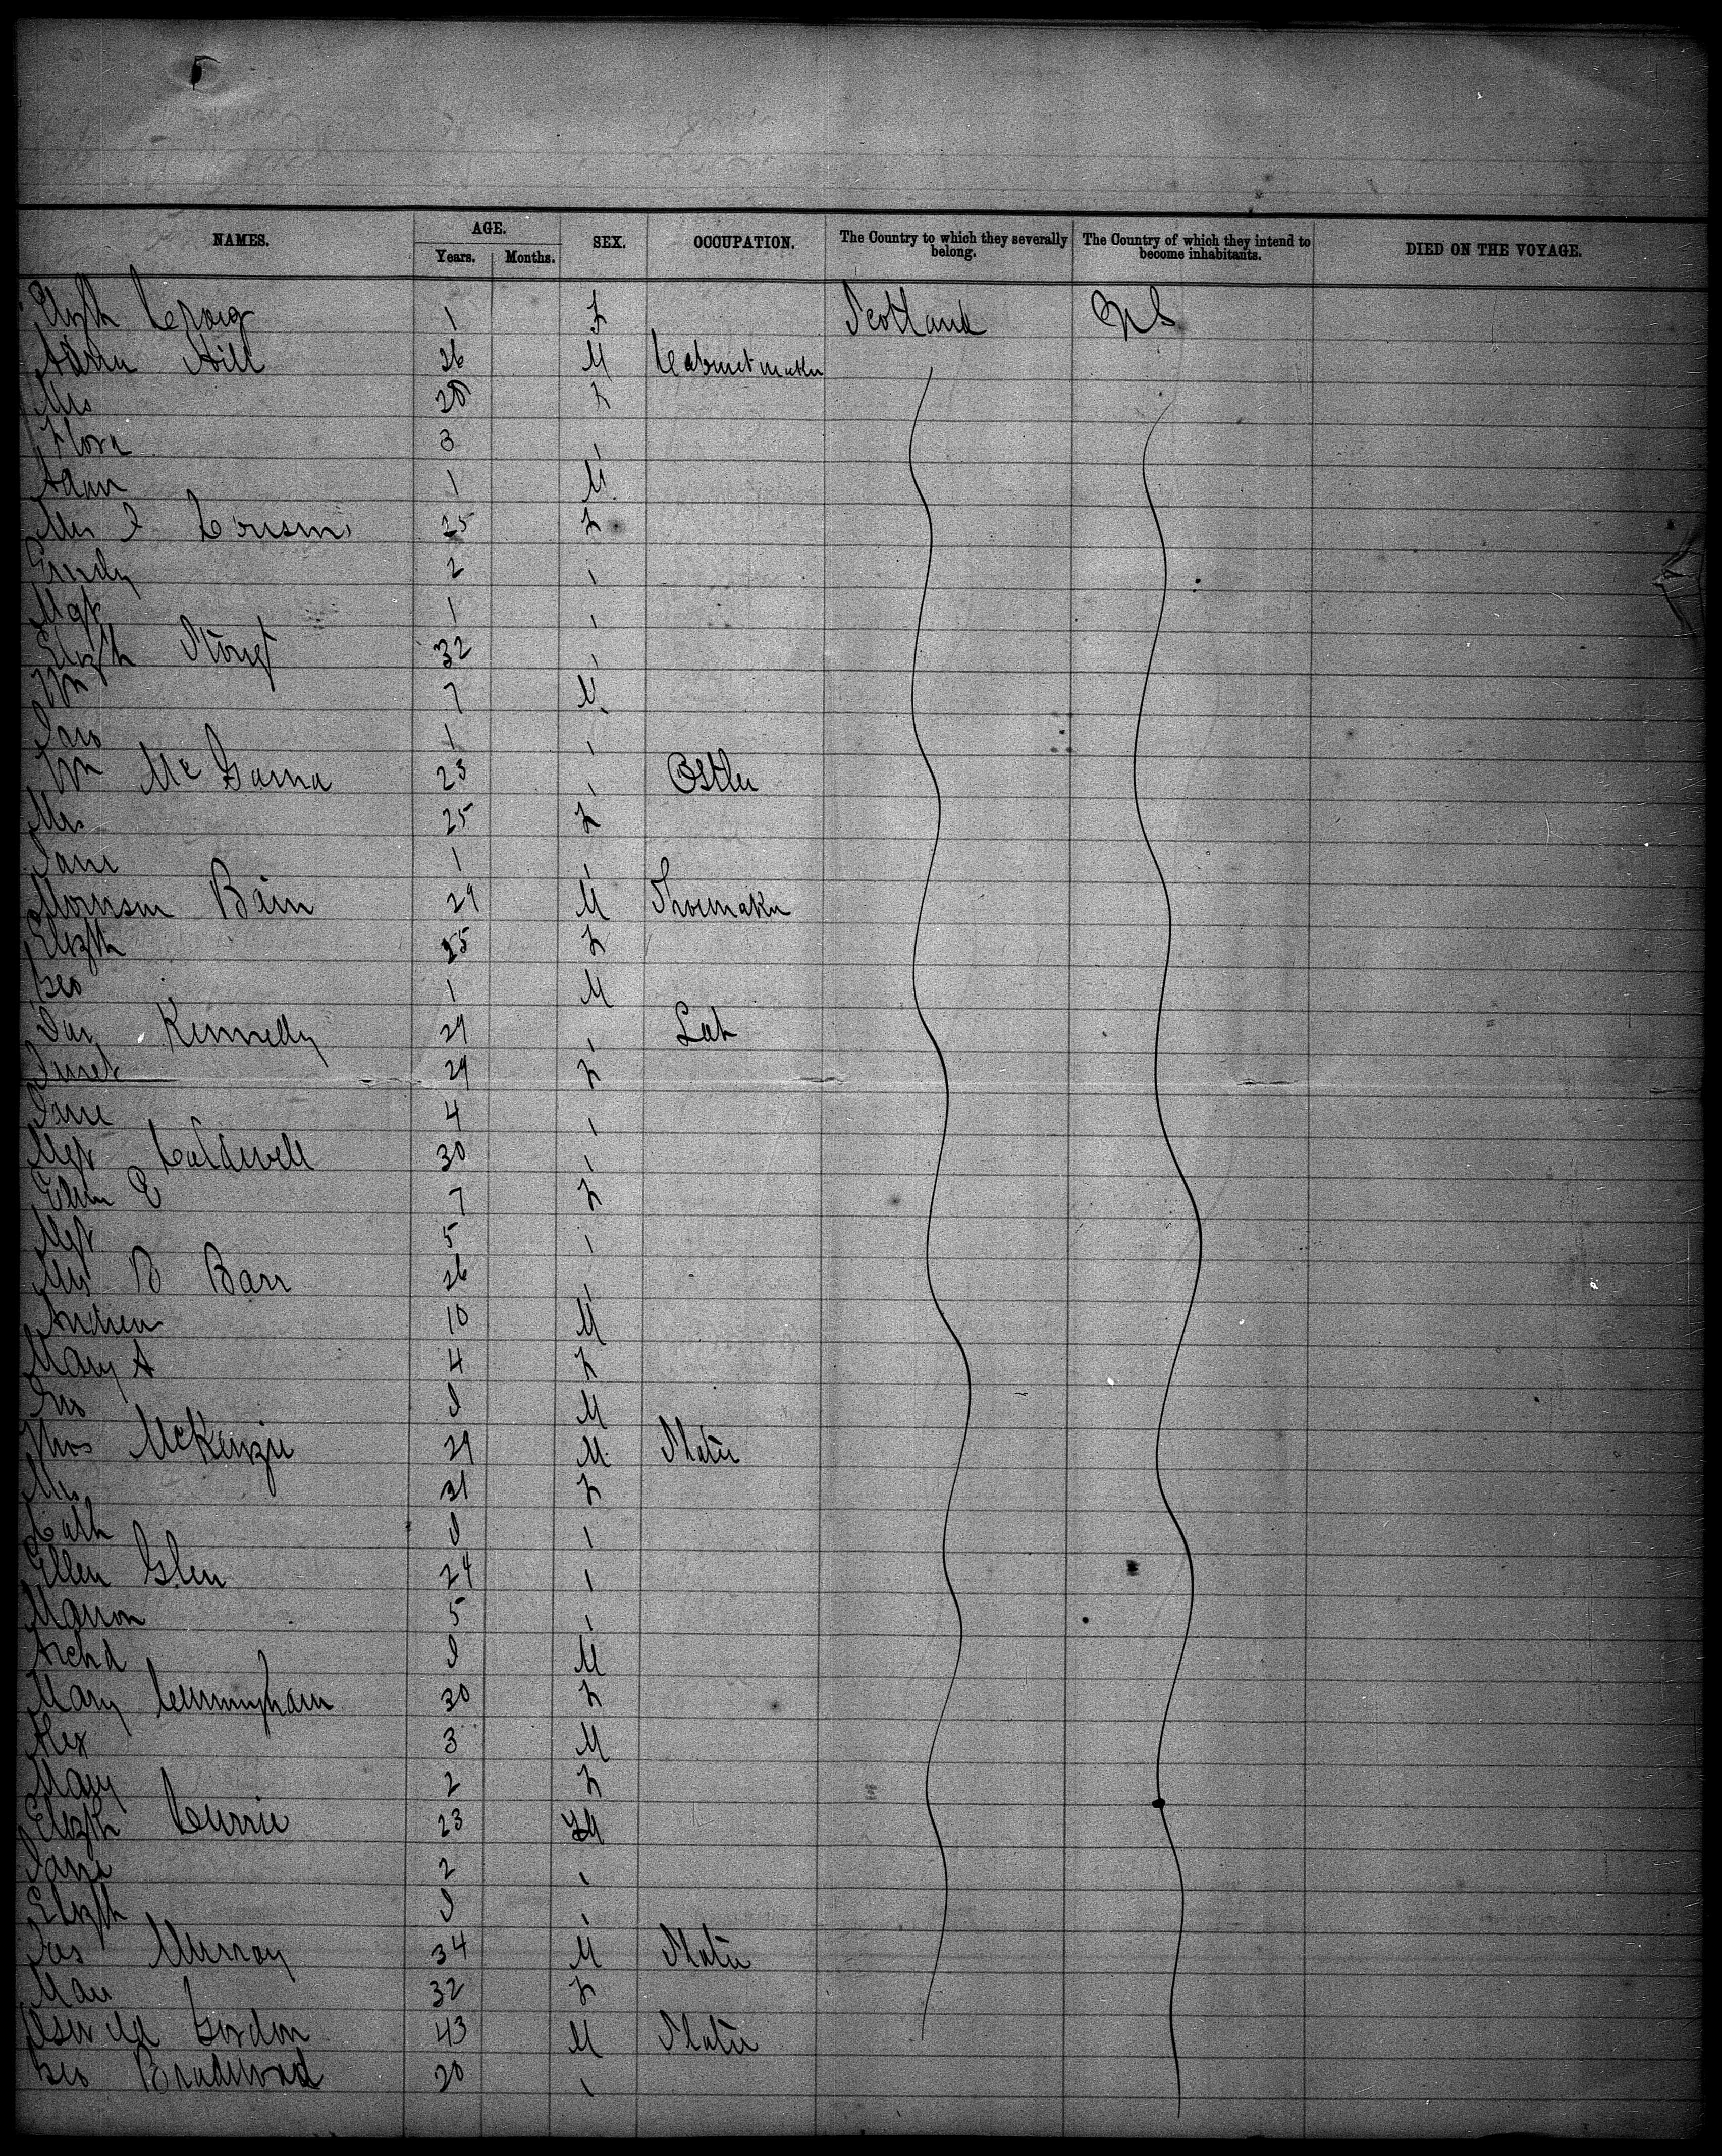 5
NAMES. AGE. Years. Months. SEX. OCCUPATION. The Country to which they severally belong. The Country of which they intend to become inhabitants. DIED ON THE VOYAGE.
Elizth Craig 1 F Scotland US
Adam Hill 26 M Cabinetmaker
Mrs 28 F
Flora 3 "
Adam 1 M
Mrs J Cousin 25 F
2 "
Mgt 1 "
Elizth 32 "
Wm 7 M
Jas 1 "
Wm 23 " Ostler
Mrs 25 F
Jane 1 "
Morrison Bain 29 M Shoemaker
Elizth 25 F
Geo 1 M
Jas Kennedy 29 " Lab
Janet 29 F
Jane 4 "
Mgt Caldwell 30 "
Ellen E 7 F
Mgt 5 "
Mrs B Barr 26 "
Andrew 10 M
Mary A 4 F
Jno M
Thos McKenzie 29 M Slater
Mrs 31 F
Cath "
Ellen Glen 24 "
Marion 5 "
Archd M
Mary Cunningham 30 F
Alex 3 M
Mary 2 F
Elizth Currie 23
Jane 2 "
Elizth "
Jas Murray 34 M Slater
32 F
Oswald Gordon 43 M Slater
Geo Bradwood 20 "